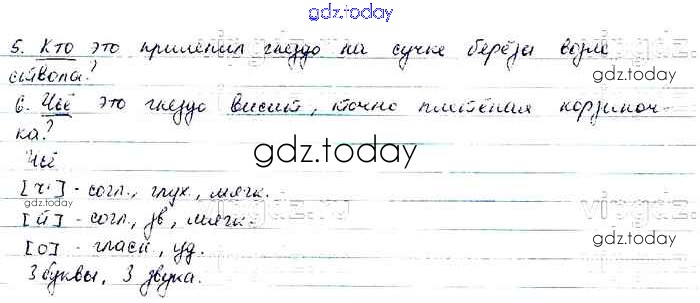 gdz.today
5. Кто это прилепил гнездо на сучке берёзы возле
ствола?
gdz.today
6. Чьё это гнездо висит, точно плетёная корзиноч-
ка?
gdz.today
Чьё
[ч'] - согл., глух., мягк.
gdz.today
[й'] - согл., зв., мягк.
[о] - гласн., уд.
gdz.today
3 буквы, 3 звука.